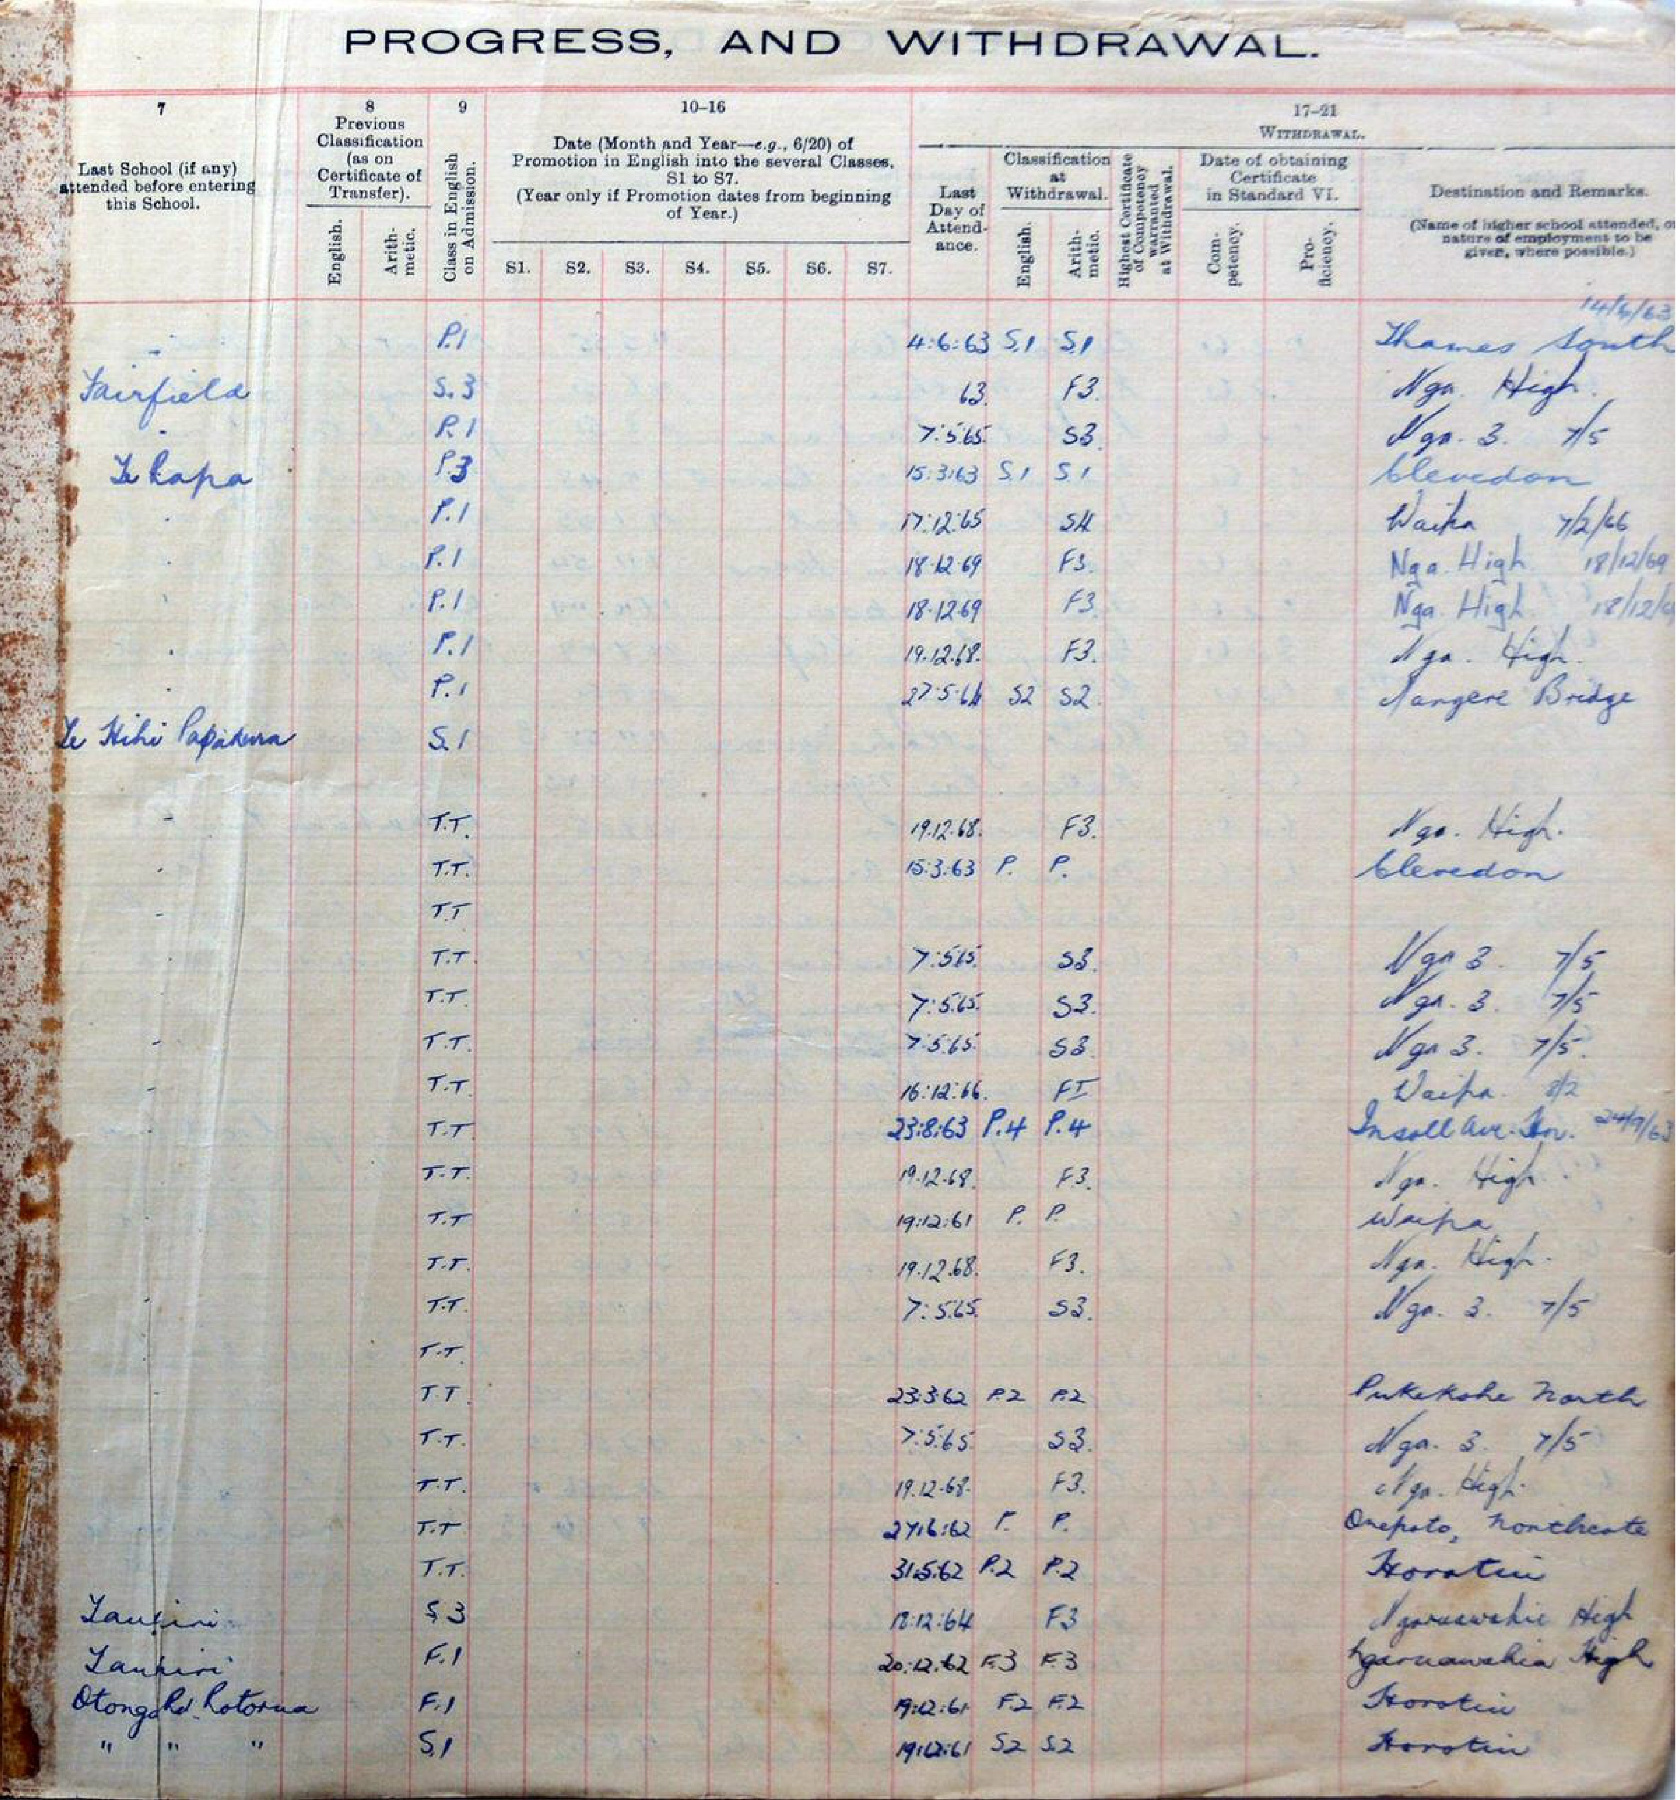 PROGRESS, AND WITHDRAWAL.
7 8 9 10-16 17-21
Last School (if any) attended before entering this School.
Previous Classification (as on Certificate of Transfer).
English. Arithmetic.
Class in English on Admission.
Date (Month and Year—e.g., 6/20) of Promotion in English into the several Classes, S1 to S7.
(Year only if Promotion dates from beginning of Year.)
S1. S2. S3. S4. S5. S6. S7.
WITHDRAWAL.
Last Day of Attendance.
Classification at Withdrawal.
English. Arithmetic.
Highest Certificate of Competency warranted at Withdrawal.
Date of obtaining Certificate in Standard VI.
Competency. Proficiency.
Destination and Remarks.
(Name of higher school attended, or nature of employment to be given, where possible.)
P.1 4:6:63 S.1 S.1 Thames South 14/6/63
Fairfield S.3 63. F3. Nga. High.
P.1 7:5:65 S3. Nga. 3. 7/5
Te Rapa P.3 15:3:63 S.1 S.1 Clevedon
P.1 17:12:65 S4 Waipa 7/2/66
P.1 18.12.69 F3. Nga. High 18/12/69
P.1 18.12.69 F3. Nga. High 18/12/
P.1 19.12.68. F3. Nga. High.
P.1 27:5:64 S2 S2. Mangere Bridge
Te Hihi Papakura S.1
- T.T. 19.12.68. F3. Nga. High.
- T.T. 15:3:63 P. P. Clevedon
- T.T
T.T. 7:5:65. S3. Nga 3. 7/5
- T.T. 7:5:65. S3. Nga. 3. 7/5
- T.T. 7:5:65 S3. Nga 3. 7/5.
- T.T. 16:12:66. FI Waipa. 8/2
T.T 23:8:63 P.4 P.4 Insoll Ave. Ham. 24/9/63
T.T. 19.12.68. F3. Nga. High.
T.T 19:12:61 P. P. Waipa
T.T. 19.12.68. F3. Nga. High.
T.T. 7:5:65. S3. Nga. 3. 7/5
T.T.
T.T. 23:3:62 P.2 P.2 Pukekohe North
T.T. 7:5:65 S3. Nga. 3. 7/5
T.T. 19.12.68. F3. Nga. High.
T.T 27:6:62 P. P. Onepoto, Northcote
T.T. 31:5:62 P.2 P.2 Horotiu
Taupiri S3 18:12:64 F3 Ngaruawahia High
Taupiri F.1 20:12:62 F.3 F.3 Ngaruawahia High
Otonga Rd. Rotorua F.1 19:12:61 F.2 F.2 Horotiu
" " " S.1 19:12:61 S2 S.2 Horotiu